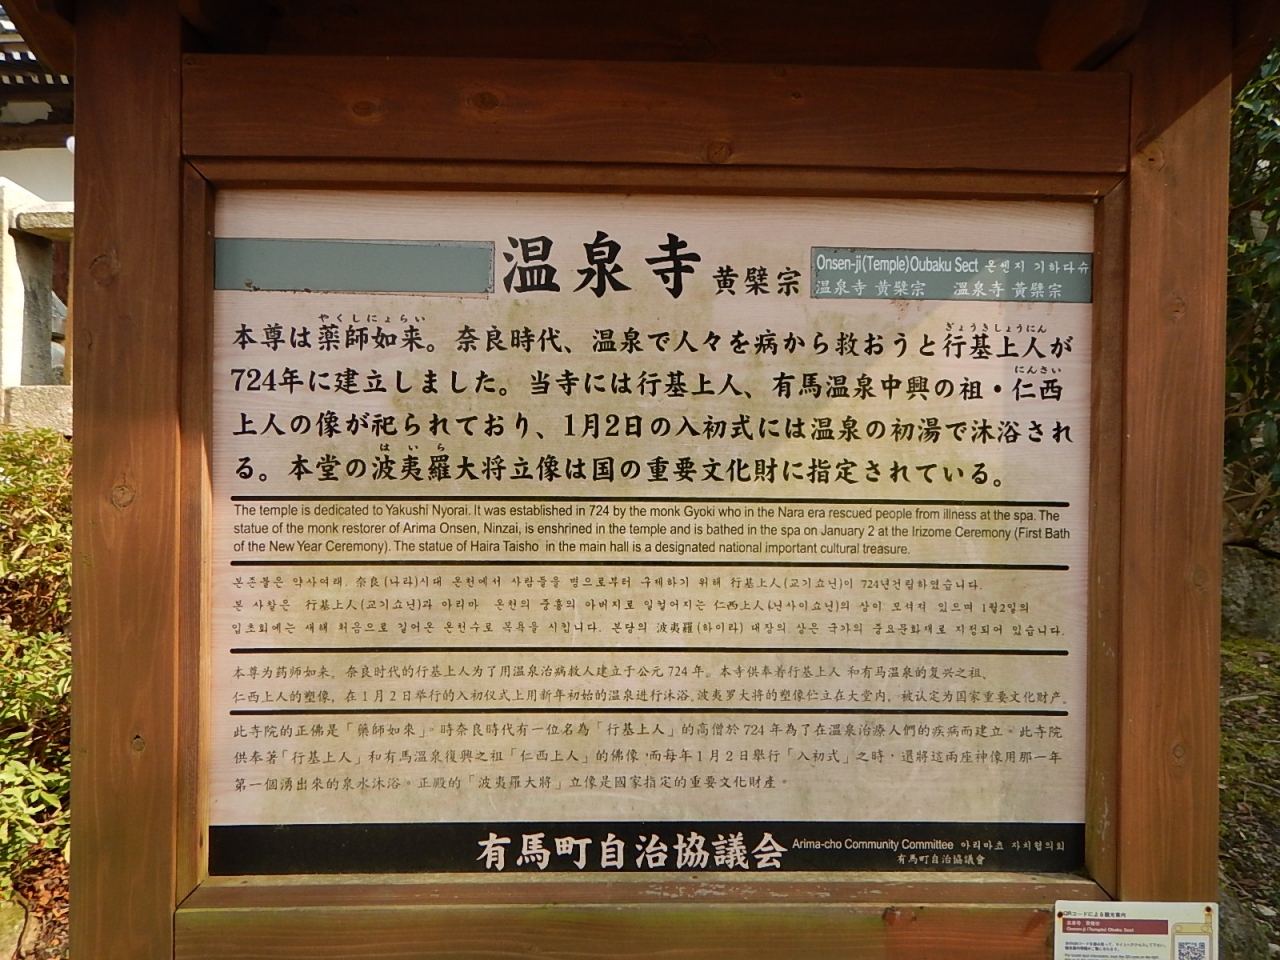 温泉寺 黄檗宗
Onsen-ji(Temple)Oubaku Sect 온센지 기하다슈
温泉寺 黄檗宗 温泉寺 黃檗宗
やくしにょらい ぎょうきしょうにん
本尊は薬師如来。奈良時代、温泉で人々を病から救おうと行基上人が
にんさい
724年に建立しました。当寺には行基上人、有馬温泉中興の祖・仁西
上人の像が祀られており、1月2日の入初式には温泉の初湯で沐浴され
はいら
る。本堂の波夷羅大将立像は国の重要文化財に指定されている。
The temple is dedicated to Yakushi Nyorai. It was established in 724 by the monk Gyoki who in the Nara era rescued people from illness at the spa. The
statue of the monk restorer of Arima Onsen, Ninzai, is enshrined in the temple and is bathed in the spa on January 2 at the Irizome Ceremony (First Bath
of the New Year Ceremony). The statue of Haira Taisho in the main hall is a designated national important cultural treasure.
본존불은 약사여래. 奈良(나라)시대 온천에서 사람들을 병으로부터 구제하기 위해 行基上人(교기쇼닌)이 724년건립하였습니다.
본 사찰은 行基上人(교기쇼닌)과 아리마 온천의 중흥의 아버지로 일컬어지는 仁西上人(닌사이쇼닌)의 상이 모셔져 있으며 1월2일의
입초회에는 새해 처음으로 길어온 온천수로 목욕을 시킵니다. 본당의 波夷羅(하이라) 대장의 상은 국가의 중요문화재로 지정되어 있습니다.
本尊为药师如来。奈良时代的行基上人为了用温泉治病救人建立于公元 724 年。本寺供奉着行基上人 和有马温泉的复兴之祖、
仁西上人的塑像，在 1 月 2 日举行的入初仪式上用新年初始的温泉进行沐浴。波夷罗大将的塑像伫立在大堂内，被认定为国家重要文化财产。
此寺院的正佛是「藥師如來」。時奈良時代有一位名為「行基上人」的高僧於 724 年為了在溫泉治療人們的疾病而建立。此寺院
供奉著「行基上人」和有馬溫泉復興之祖「仁西上人」的佛像，而每年 1 月 2 日舉行「入初式」之時，還將這兩座神像用那一年
第一個湧出來的泉水沐浴。正殿的「波夷羅大將」立像是國家指定的重要文化財產。
有馬町自治協議会 Arima-cho Community Committee 아리마쵸 자치협의회
有馬町自治協議會
QRコードによる観光案内
温泉寺 黄檗宗
Onsen-ji (Temple) Obaku Sect